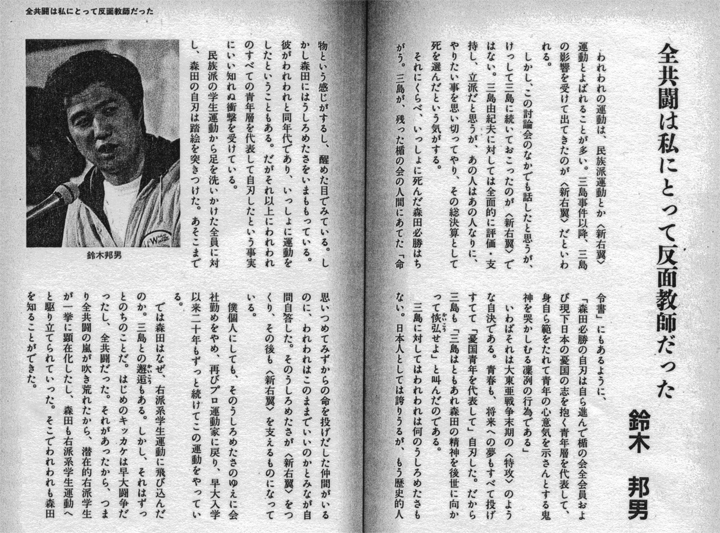 全共闘は私にとって反面教師だった
鈴木 邦男
われわれの運動は、民族派運動とか〈新右翼〉
運動とよばれることが多い。三島事件以降、三島
の影響を受けて出てきたのが〈新右翼〉だといわ
れる。
しかし、この討論会のなかでも話したと思うが、
けっして三島に続いておこったのが〈新右翼〉で
はない。三島由紀夫に対しては全面的に評価・支
持し、立派だと思うが、あの人はあの人なりに、
やりたい事を思い切ってやり、その総決算として
死を選んだという気がする。
それにくらべ、いっしょに死んだ森田必勝はち
がう。三島が、残った楯の会の人間にあてた「命
令書」にもあるように、
「森田必勝の自刃は自ら進んで楯の会全会員およ
び現下日本の憂国の志を抱く青年層を代表して、
身自ら範をたれて青年の心意気を示さんとする鬼
神を哭かしむる凜冽の行為である」
いわばそれは大東亜戦争末期の〈特攻〉のよう
な自決である。青春も、将来への夢もすべて投げ
すてて「憂国青年を代表して」自刃した。だから
三島も「三島はともあれ森田の精神を後世に向か
って恢弘せよ」と叫んだのである。
三島に対してはわれわれは何のうしろめたさも
ない。日本人としては誇りうるが、もう歴史的人
全共闘は私にとって反面教師だった
物という感じがするし、醒めた目でみている。し
かし森田にはうしろめたさをいまももっている。
彼がわれわれと同年代であり、いっしょに運動を
したということもある。だがそれ以上にわれわれ
のすべての青年層を代表して自刃したという事実
にいい知れぬ衝撃を受けている。
民族派の学生運動から足を洗いかけた全員に対
し、森田の自刃は踏絵を突きつけた。あそこまで
鈴木邦男
思いつめてみずからの命を投げだした仲間がいる
のに、われわれはこのままでいいのかとみなが自
問自答した。そのうしろめたさが〈新右翼〉をつ
くり、その後も〈新右翼〉を支えるものになって
いる。
僕個人にしても、そのうしろめたさのゆえに会
社勤めをやめ、再びプロ運動家に戻り、早大入学
以来二十年もずっと続けてこの運動をやってい
る。
では森田はなぜ、右派系学生運動に飛び込んだ
のか。三島との邂逅もある。しかし、それはずっ
とのちのことだ。はじめのキッカケは早大闘争だ
ったし、全共闘だった。それがあったから、つま
り全共闘の嵐が吹き荒れたから、潜在的右派学生
が一挙に顕在化したし、森田も右派系学生運動へ
と駆り立てられていった。そこでわれわれも森田
を知ることができた。